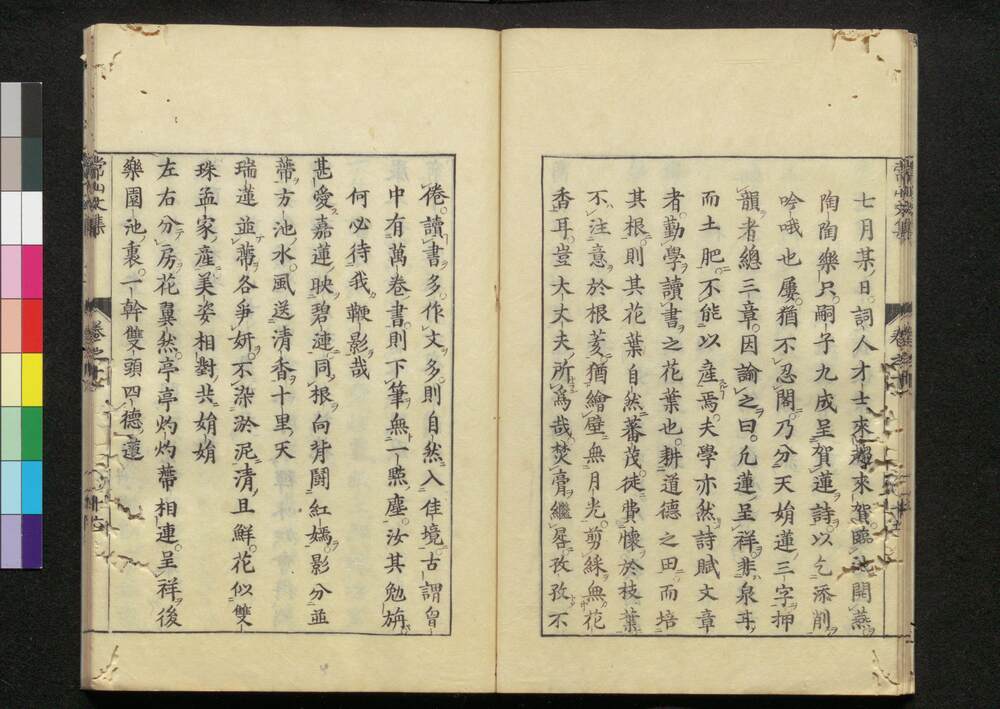 七月某日詞人才士來趨來賀臨池開燕
陶陶樂只嗣子九成呈賀蓮詩以乞添削
吟哦也屢猶不忍閣乃分天娟蓮三字押
韻者總三章因諭之曰凡蓮呈祥非泉甘
而土肥不能以産焉夫學亦然詩賦文章
者勤學讀書之花葉也耕道德之田而培
其根則其花葉自然蕃茂徒費懷於枝葉
不注意於根荄猶繪壁無月光剪綵無花
香耳豈大丈夫所爲哉焚膏繼晷孜孜不
倦讀書多作文多則自然入佳境古謂胷
中有萬卷書則下筆無一㸃塵汝其勉旃
何必待我鞭影哉
甚愛嘉蓮映碧漣同根向背鬪紅嫣影分並
蔕方池水風送清香十里天
瑞蓮並蔕各爭妍不染淤泥清且鮮花似雙
珠孟家産美姿相對共娟娟
左右分房花翼然亭亭灼灼蔕相連呈祥後
樂園池裏一幹雙頭四德蓮
常山文集
卷之
常山文集
卷之